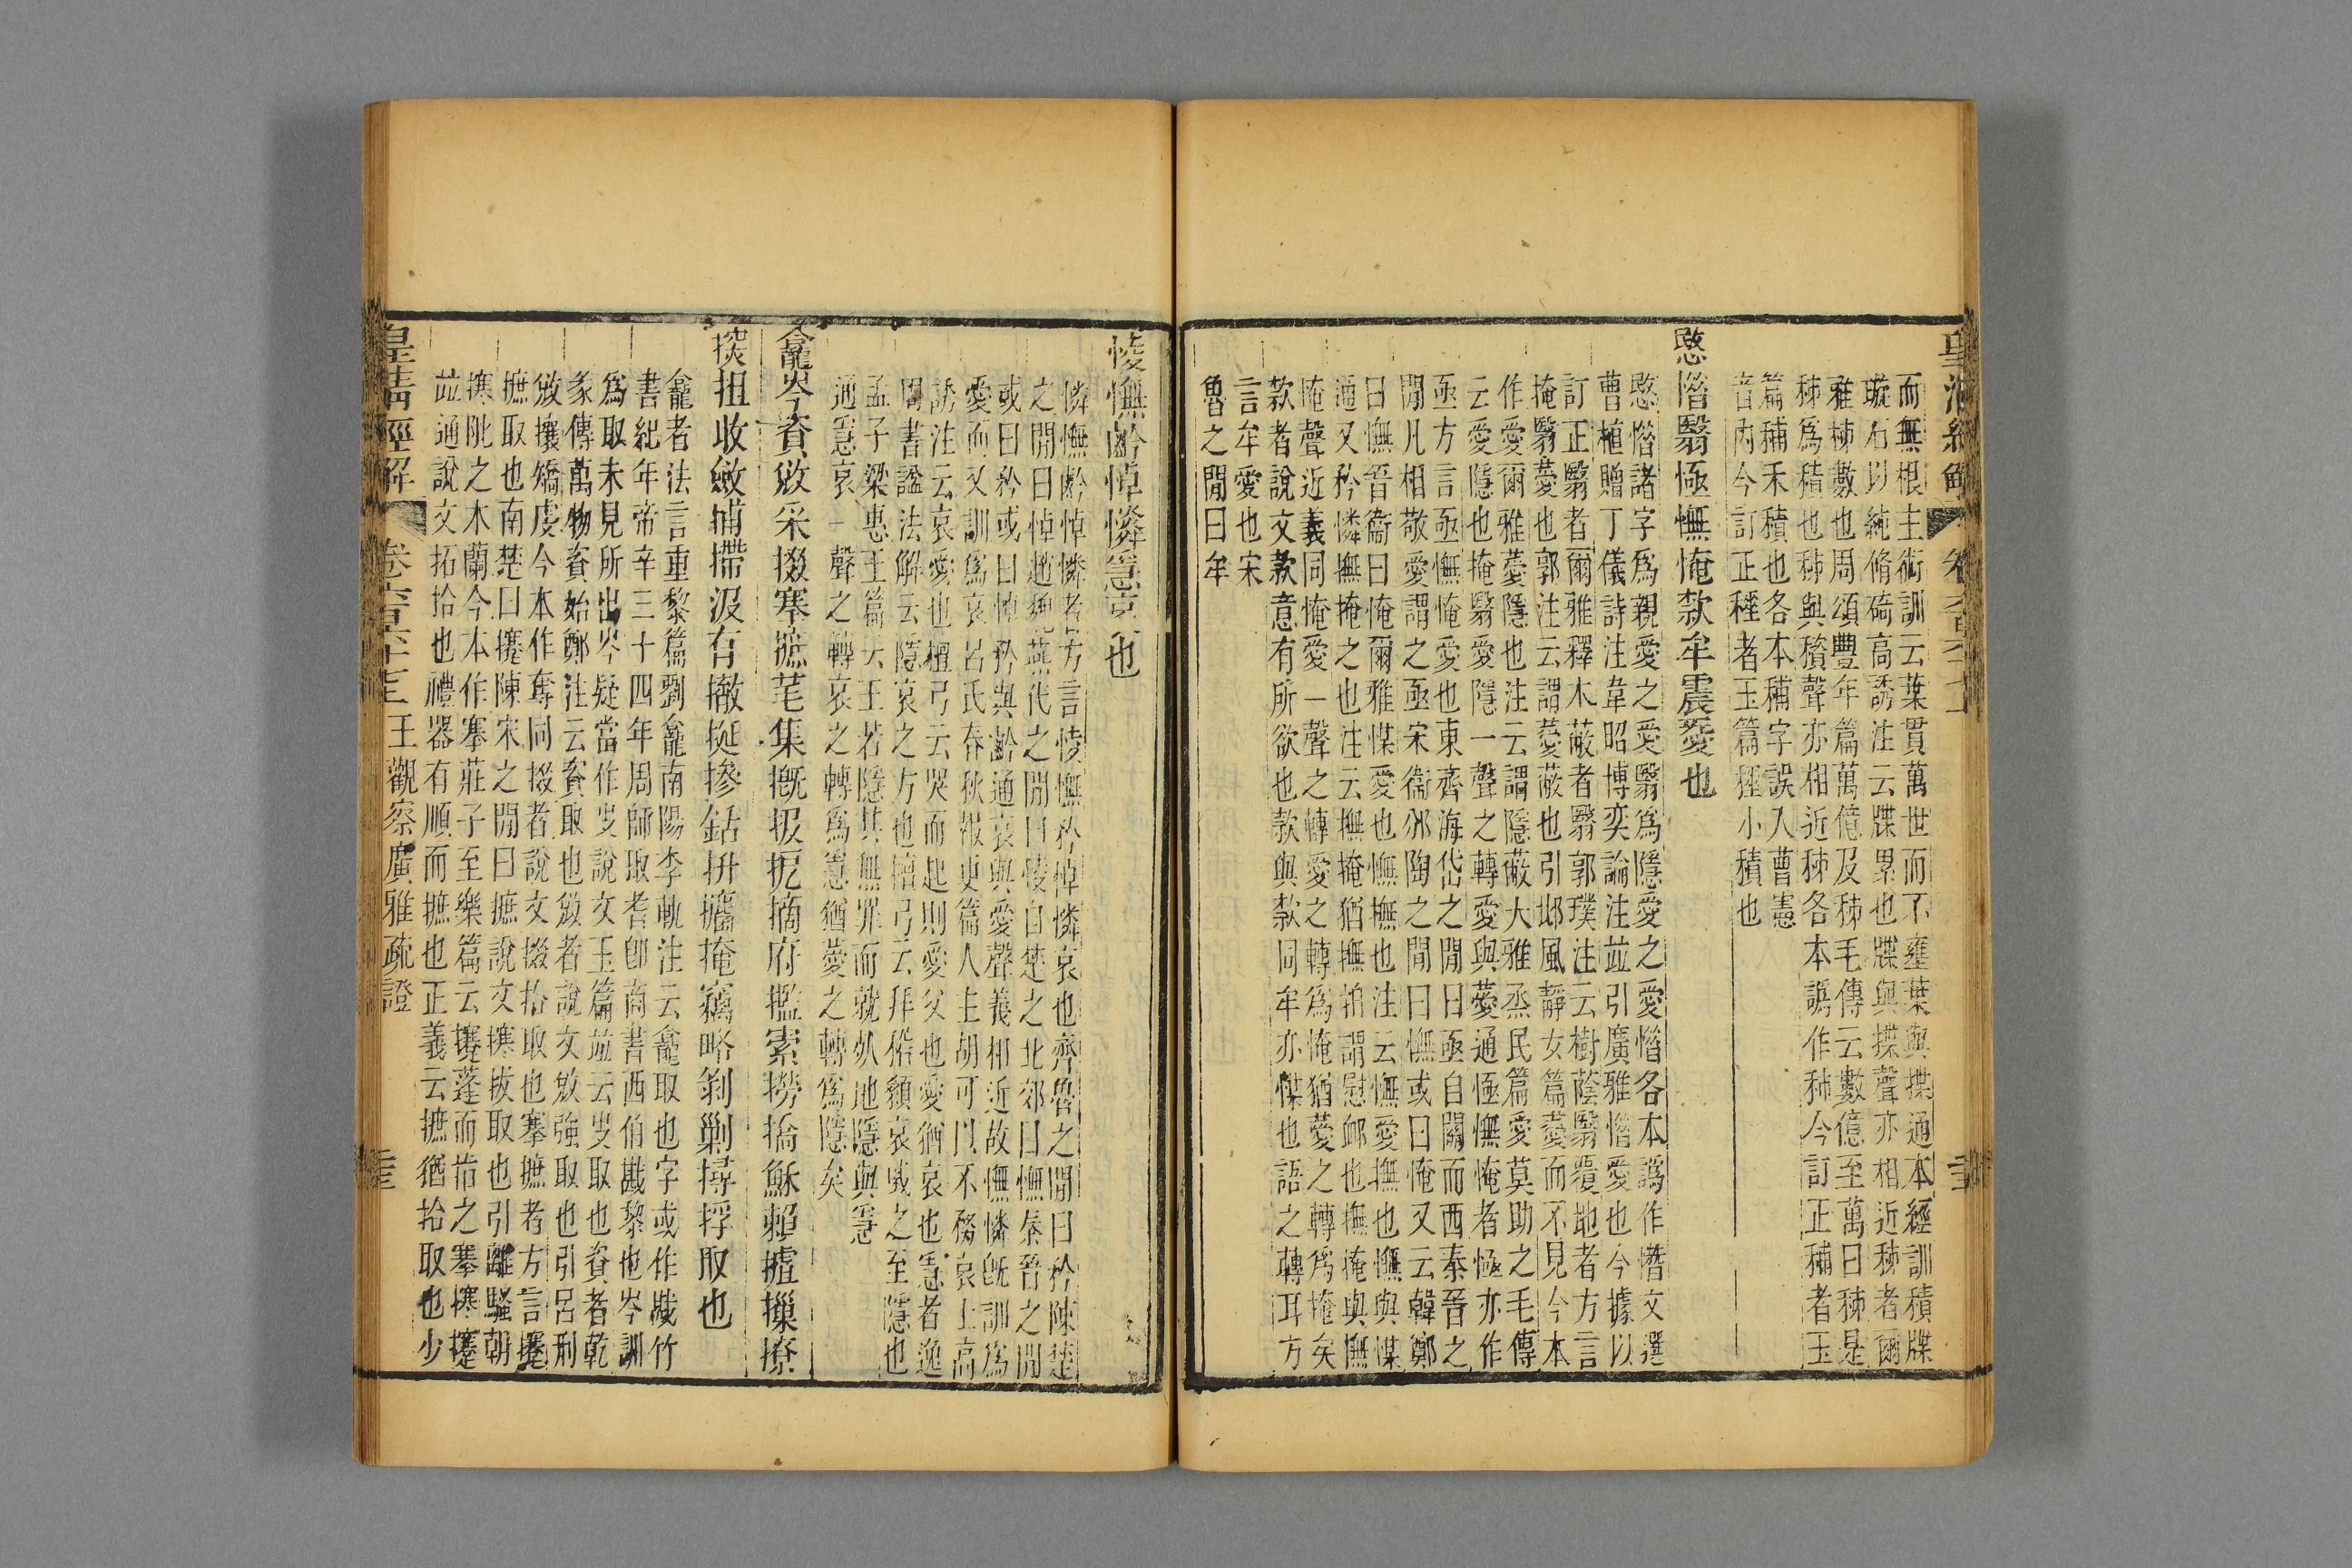 而無根主術訓云葉貫萬世而不壅葉與揲通本經訓積牒
璇石以純脩碕高誘注云牒累也牒與揲聲亦相近秭者爾
雅秭數也周頌豐年篇萬億及秭毛傳云數億至萬曰秭是
秭爲積也秭與積聲亦相近秭各本譌作秭今訂正稱者玉
篇稱禾積也各本稱字誤入曹憲
音內今訂正稱者玉篇秷小積也
愍惜翳極憮㤿款牟震愛也
愍惜諸字爲親愛之愛翳爲隱愛之愛惜各本譌作憯文選
曹植贈丁儀詩注韋昭博奕論注竝引廣雅惜愛也今據以
訂正翳者爾雅釋木蔽者翳郭璞注云樹蔭翳覆地者方言
掩翳薆也郭注云謂薆蔽也引邶風靜女篇薆而不見今本
作愛爾雅薆隱也注云謂隱蔽大雅烝民篇愛莫助之毛傳
云愛隱也掩翳愛隱一聲之轉愛與薆通極憮㤿者極亦作
亟方言亟憮㤿愛也東齊海岱之閒曰亟自關而西秦晉之
閒凡相敬愛謂之亟宋衞邠陶之閒曰憮或曰㤿又云韓鄭
曰憮晉衞曰㤿爾雅㥌愛也憮撫也注云憮愛撫也憮與㥌
通又矜憐撫掩之也注云撫掩猶撫拍謂慰卹也撫掩與憮
㤿聲近義同㤿愛一聲之轉愛之轉爲㤿猶薆之轉爲掩矣
款者說文款意有所欲也款與款同牟亦㥌也語之轉耳方
言牟愛也宋
魯之閒曰牟
㥄憮齡悼憐㥯哀也
憐憮齡悼憐者方言㥄憮矜悼憐哀也齊魯之閒曰矜陳楚
之閒曰悼趙魏燕代之閒曰㥄自楚之北郊曰憮秦晉之閒
或曰矜或曰悼矜與齡通哀與愛聲義相近故憮憐旣訓爲
愛而又訓爲哀呂氏春秋報更篇人主胡可以不務哀士高
誘注云哀愛也檀弓云哭而起則愛父也愛猶哀也㥯者逸
周書謚法解云隱哀之方也檀弓云拜稽顙哀戚之至隱也
孟子梁惠王篇云王若隱其無罪而就死地隱與㥯
通㥯哀一聲之轉哀之轉爲㥯猶薆之轉爲隱矣
龕岑資敓采掇搴摭芼集摡扱抳摘府㩜索撈撟穌賴摣摷撩
探抯收斂捕㨒汲有撤挻摻銛拚攟掩竊略剝剿撏捊取也
龕者法言重黎篇劉龕南陽李軌注云龕取也字或作㦰竹
書紀年帝辛三十四年周師取耆卽商書西伯戡黎也岑訓
爲取未見所出岑疑當作𠬛說文玉篇竝云𠬛取也資者乾
彖傳萬物資始鄭注云資取也敓者說文敓強取也引呂刑
敓攘矯虔今本作奪同掇者說文掇拾取也搴摭者方言攓
摭取也南楚曰攓陳宋之閒曰摭說文㩃拔取也引離騷朝
㩃阰之木蘭今本作搴莊子至樂篇云攓蓬而指之搴㩃攓
竝通說文拓拾也禮器有順而摭也正義云摭猶拾取也少
皇淸經解 卷六百六十七 王觀察廣雅疏證